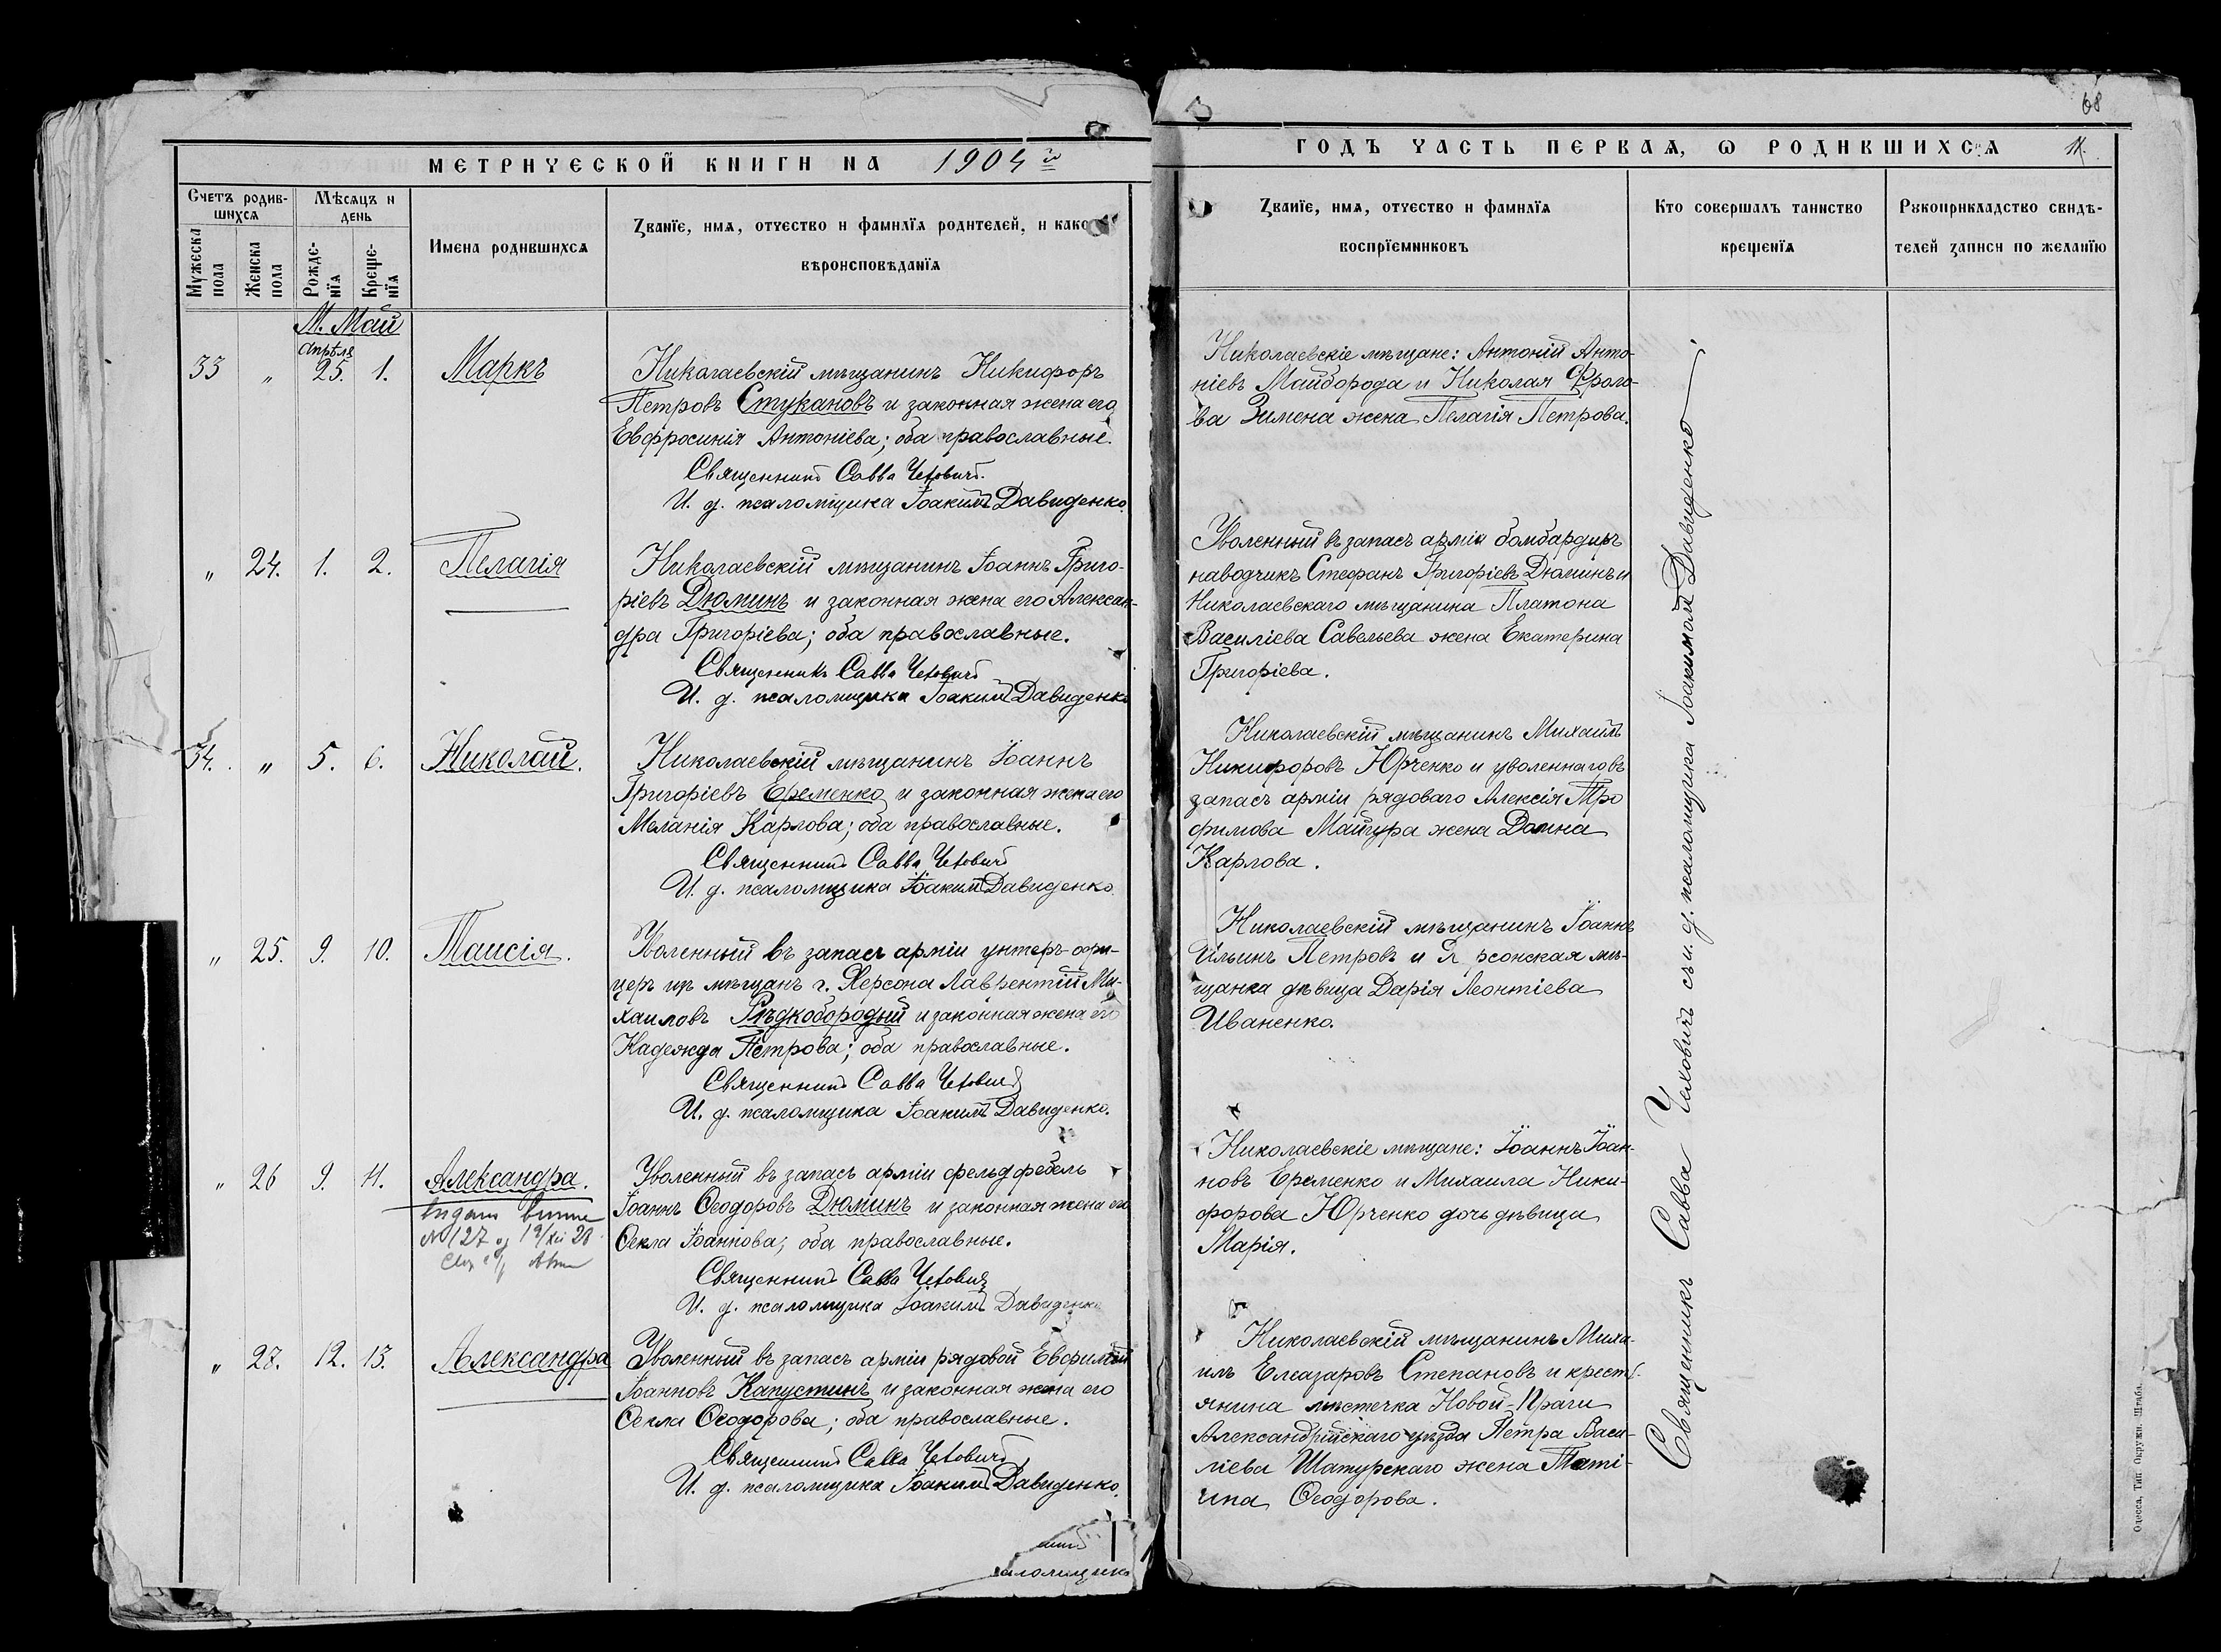 МЕТРИЧЕСКОЙ КНИГИ НА 1904 й
Счетъ родив-
шихся
Мѣсяцъ и
день
Мужеска
пола
Женска
пола
Рожде-
нїя
Креще-
нїя
Имена родившихся
Званїе, имя, отчество и фамилїя родителей, и како
вѣроисповѣданїя
М. Май
Апрѣля
33 „ 25. 1. Маркъ
Николаевскій мѣщанинъ Никифоръ
Петровъ Стукановъ и законная жена его
Евфросинія Антоніева; оба православные.
Священникъ Савва Чеховичъ.
И. д. псаломщика Іоакимъ Давиденко.
„ 24. 1. 2. Пелагія
Николаевскій мѣщанинъ Іоаннъ Григо-
ріевъ Дюминъ и законная жена его Алексан-
дра Григоріева; оба православные.
Священникъ Савва Чеховичъ
И. д. псаломщика Іоакимъ Давиденко
34. „ 5. 6. Николай.
Николаевскій мѣщанинъ Іоаннъ
Григоріевъ Еременко и законная жена его
Меланія Карлова; оба православные.
Священникъ Савва Чеховичъ
И. д. псаломщика Іоакимъ Давиденко
„ 25. 9. 10. Таисія.
Уволенный въ запасъ арміи унтеръ-офи-
церъ изъ мѣщанъ г. Херсона Лаврентій Ми-
хаиловъ Рѣдкобородый и законная жена его
Надежда Петрова; оба православные.
Священникъ Савва Чеховичъ
И. д. псаломщика Іоакимъ Давиденко.
„ 26 9. 11. Александра.
№ 127
Уволенный въ запасъ арміи фельдфебель
Іоаннъ Ѳеодоровъ Дюминъ и законная жена его
Ѳекла Іоаннова; оба православные.
Священникъ Савва Чеховичъ
И. д. псаломщика Іоакимъ Давиденко
„ 27. 12. 13. Александра
Уволенный въ запасъ арміи рядовой Евфимій
Іоанновъ Капустинъ и законная жена его
Ѳекла Ѳеодорова; оба православные.
Священникъ Савва Чеховичъ
И. д. псаломщика Іоакимъ Давиденко.
аломщика
68
ГОДЪ ЧАСТЬ ПЕРВАЯ, Ѡ РОДИВШИХСЯ
Званїе, имя, отчество и фамилїя
воспрїемниковъ
Кто совершалъ таинство
крещенїя
Рукоприкладство свидѣ-
телей записи по желанїю
Николаевскіе мѣщане: Антоній Анто-
ніевъ Майборода и Николая Фроло-
ва Зимена жена Пелагія Петрова.
Уволенный въ запасъ арміи бомбардиръ
наводчикъ Стефанъ Григоріевъ Дюминъ и
Николаевскаго мѣщанина Платона
Василіева Савельева жена Екатерина
Григоріева.
Николаевскій мѣщанинъ Михаилъ
Никифоровъ Юрченко и уволеннаго въ
запасъ арміи рядоваго Алексія Тро
фимова Майгура жена Домна
Карлова.
Николаевскій мѣщанинъ Іоаннъ
Ильинъ Петровъ и рсонская мѣ-
щанка дѣвица Дарія Леонтіева
Иваненко.
Николаевскіе мѣщане: Іоаннъ Іоан-
новъ Еременко и Михаила Ники-
форова Юрченко дочь дѣвица
Марія.
Николаевскій мѣщанинъ Миха-
илъ Елеазаровъ Степановъ и крестъ-
янина мѣстечка Новой-Праги
Александрійскаго уѣзда Петра Васи-
ліева Шатурскаго жена Таті-
ана Ѳеодорова.
Священникъ Савва Чеховичъ съ и. д. псаломщика Іоакимомъ Давиденко
Одесса, Тип. Окружн. Штаба.